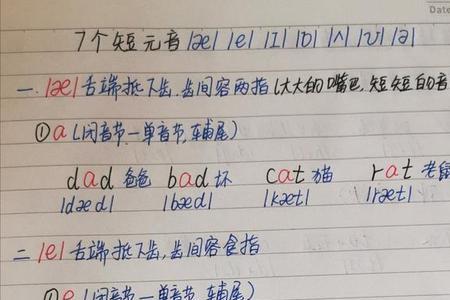 Date
7个短元音 |æ| |e| |ɪ| |ɒ| |ʌ| |ʊ| |ə|
一. |æ| 舌端抵下齿. 齿间容两指 (大大的嘴巴, 短短的音
① a (闭音节—单音节, 辅尾)
dad 爸爸 bad 坏 cat 猫 rat 老鼠
|dæd| |bæd| |kæt| |ræt|
二 |e| 舌端抵下齿, 齿间容食指
① e (闭音节—单音节, 辅尾)